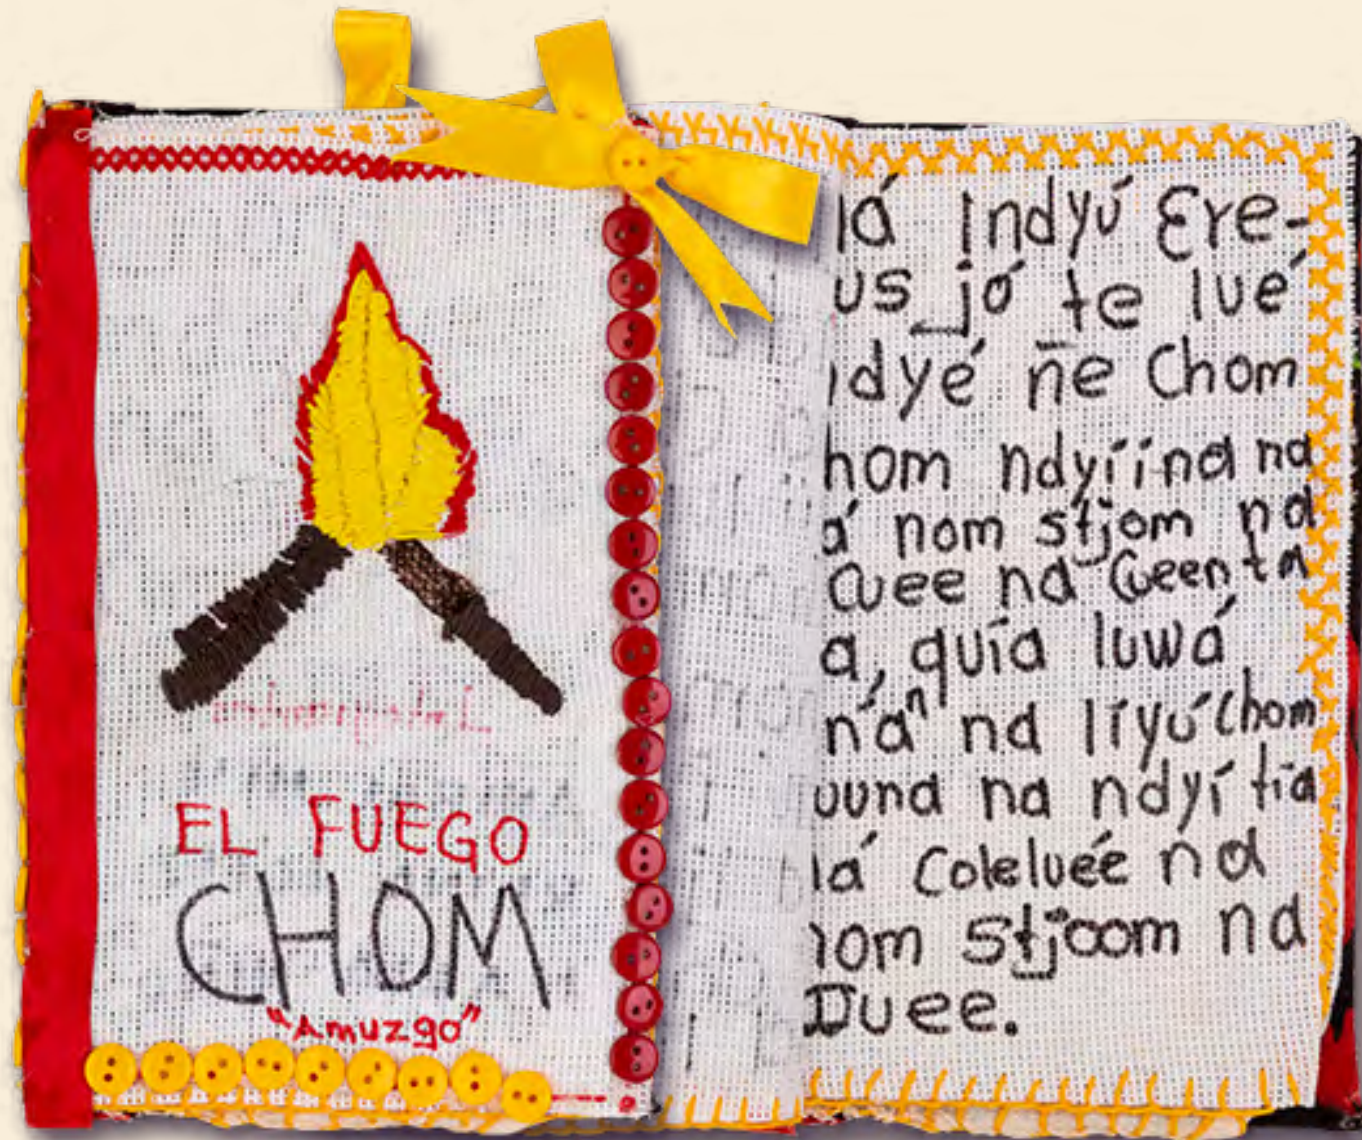 EL FUEGO
CHOM
"Amuzgo"
Indyú Ere-
jó te lué
ñe Chom
ndyíína na
nom stjom na
Cuee na Cueenta
quía luwá
na líyú Chom
na ndyí tia
Coleluée na
stjoom na
Duee.